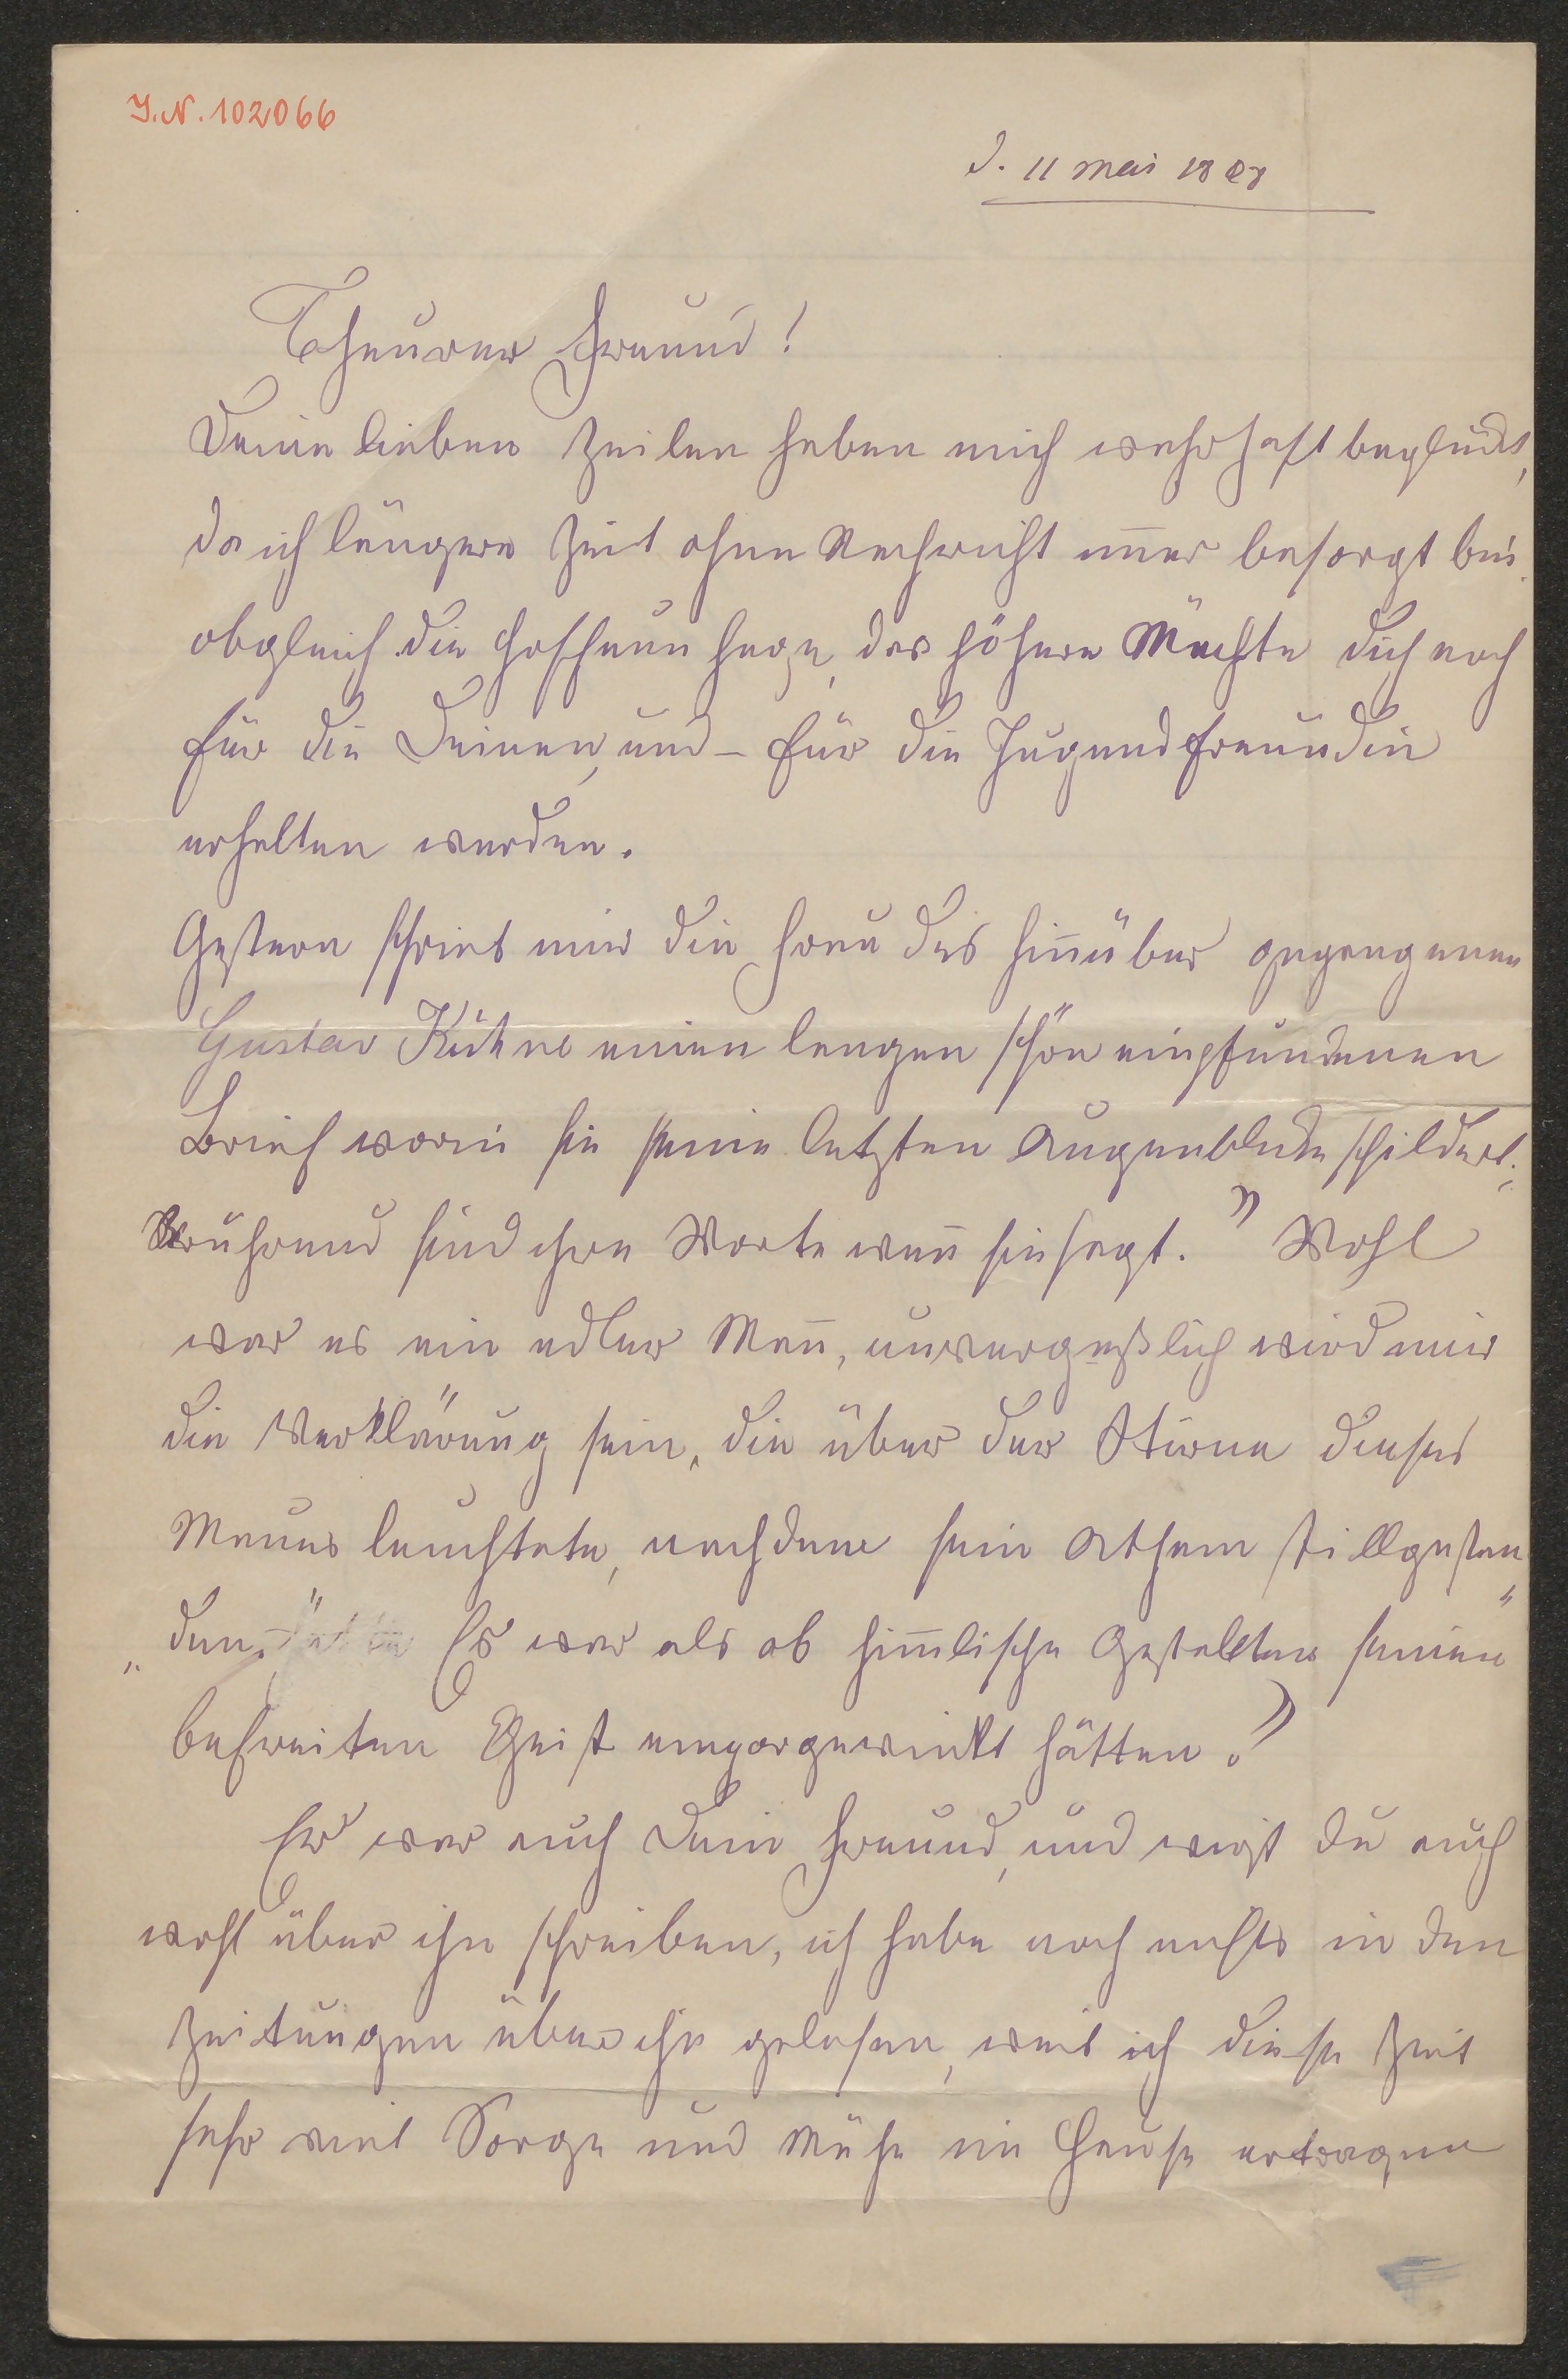 I.N. 102066
d. 11 Mai 1888
Theurer Freund!
Deine lieben Zeilen haben mich wahrhaft beglückt,
da ich längere Zeit ohne Nachricht im̅er besorgt bin
obgleich die Hoffnun hege, das höhere Mächte dich noch
für die Deinen, und – für die Jugendfreundin
erhalten werden.
Gestern schrieb mir die Frau des hin̅über gegangenen
Gustav Kühne einen langen schön empfundenen
Brief worin sie seine letzten Augenblicke schildert;
Rührend sind ihre Worte wen̅ sie sagt. " Wohl
war es ein edler Man̅, unvergeßlich wird mir
die Verklärung sein, die über der Stirne dieses
Manes leuchtete, nachdem sein Athem stillgestan
„den, Es war als ob him̅lische Gestalten seinen"
befreiten Geist emporgewinkt hätten."
Er war auch Dein Freund, und wirst du auch
wohl über ihn schreiben, ich habe noch nichts in den
Zeitungen über ihn gelesen, weil ich diese Zeit
sehr viel Sorge und Mühe im Hause ertragen